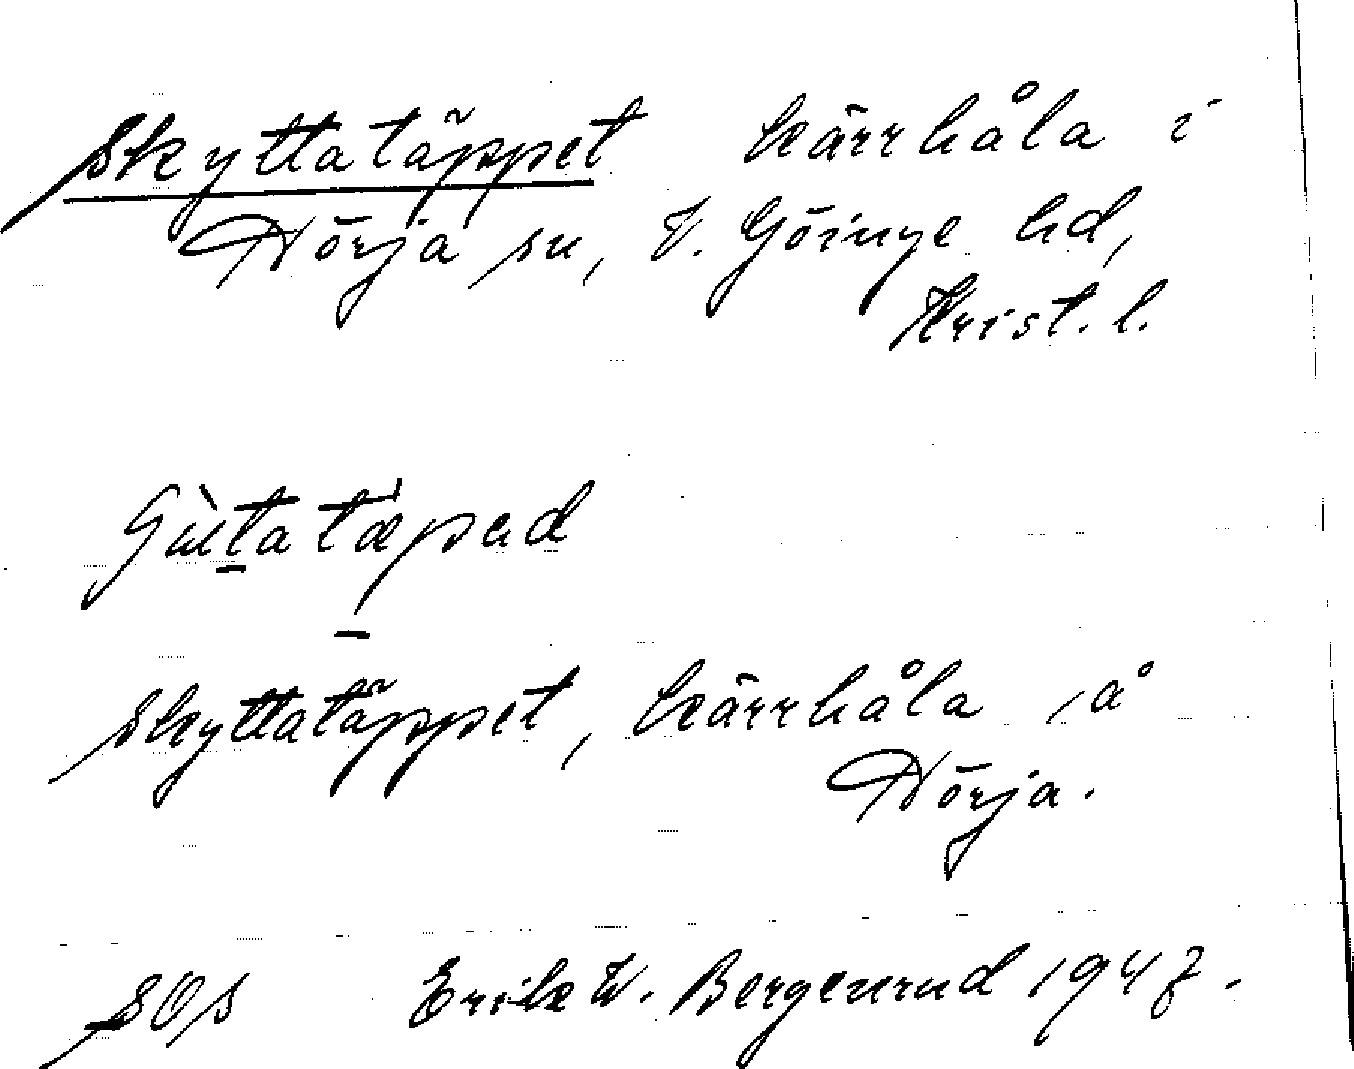 Skyttatäppet kärrhåla i
Hörja sn, V. Göinge hd,
Krist. l.
Skyttatäppet, kärrhåla å
Hörja.
SOs Erik W. Bergenrud 1947.